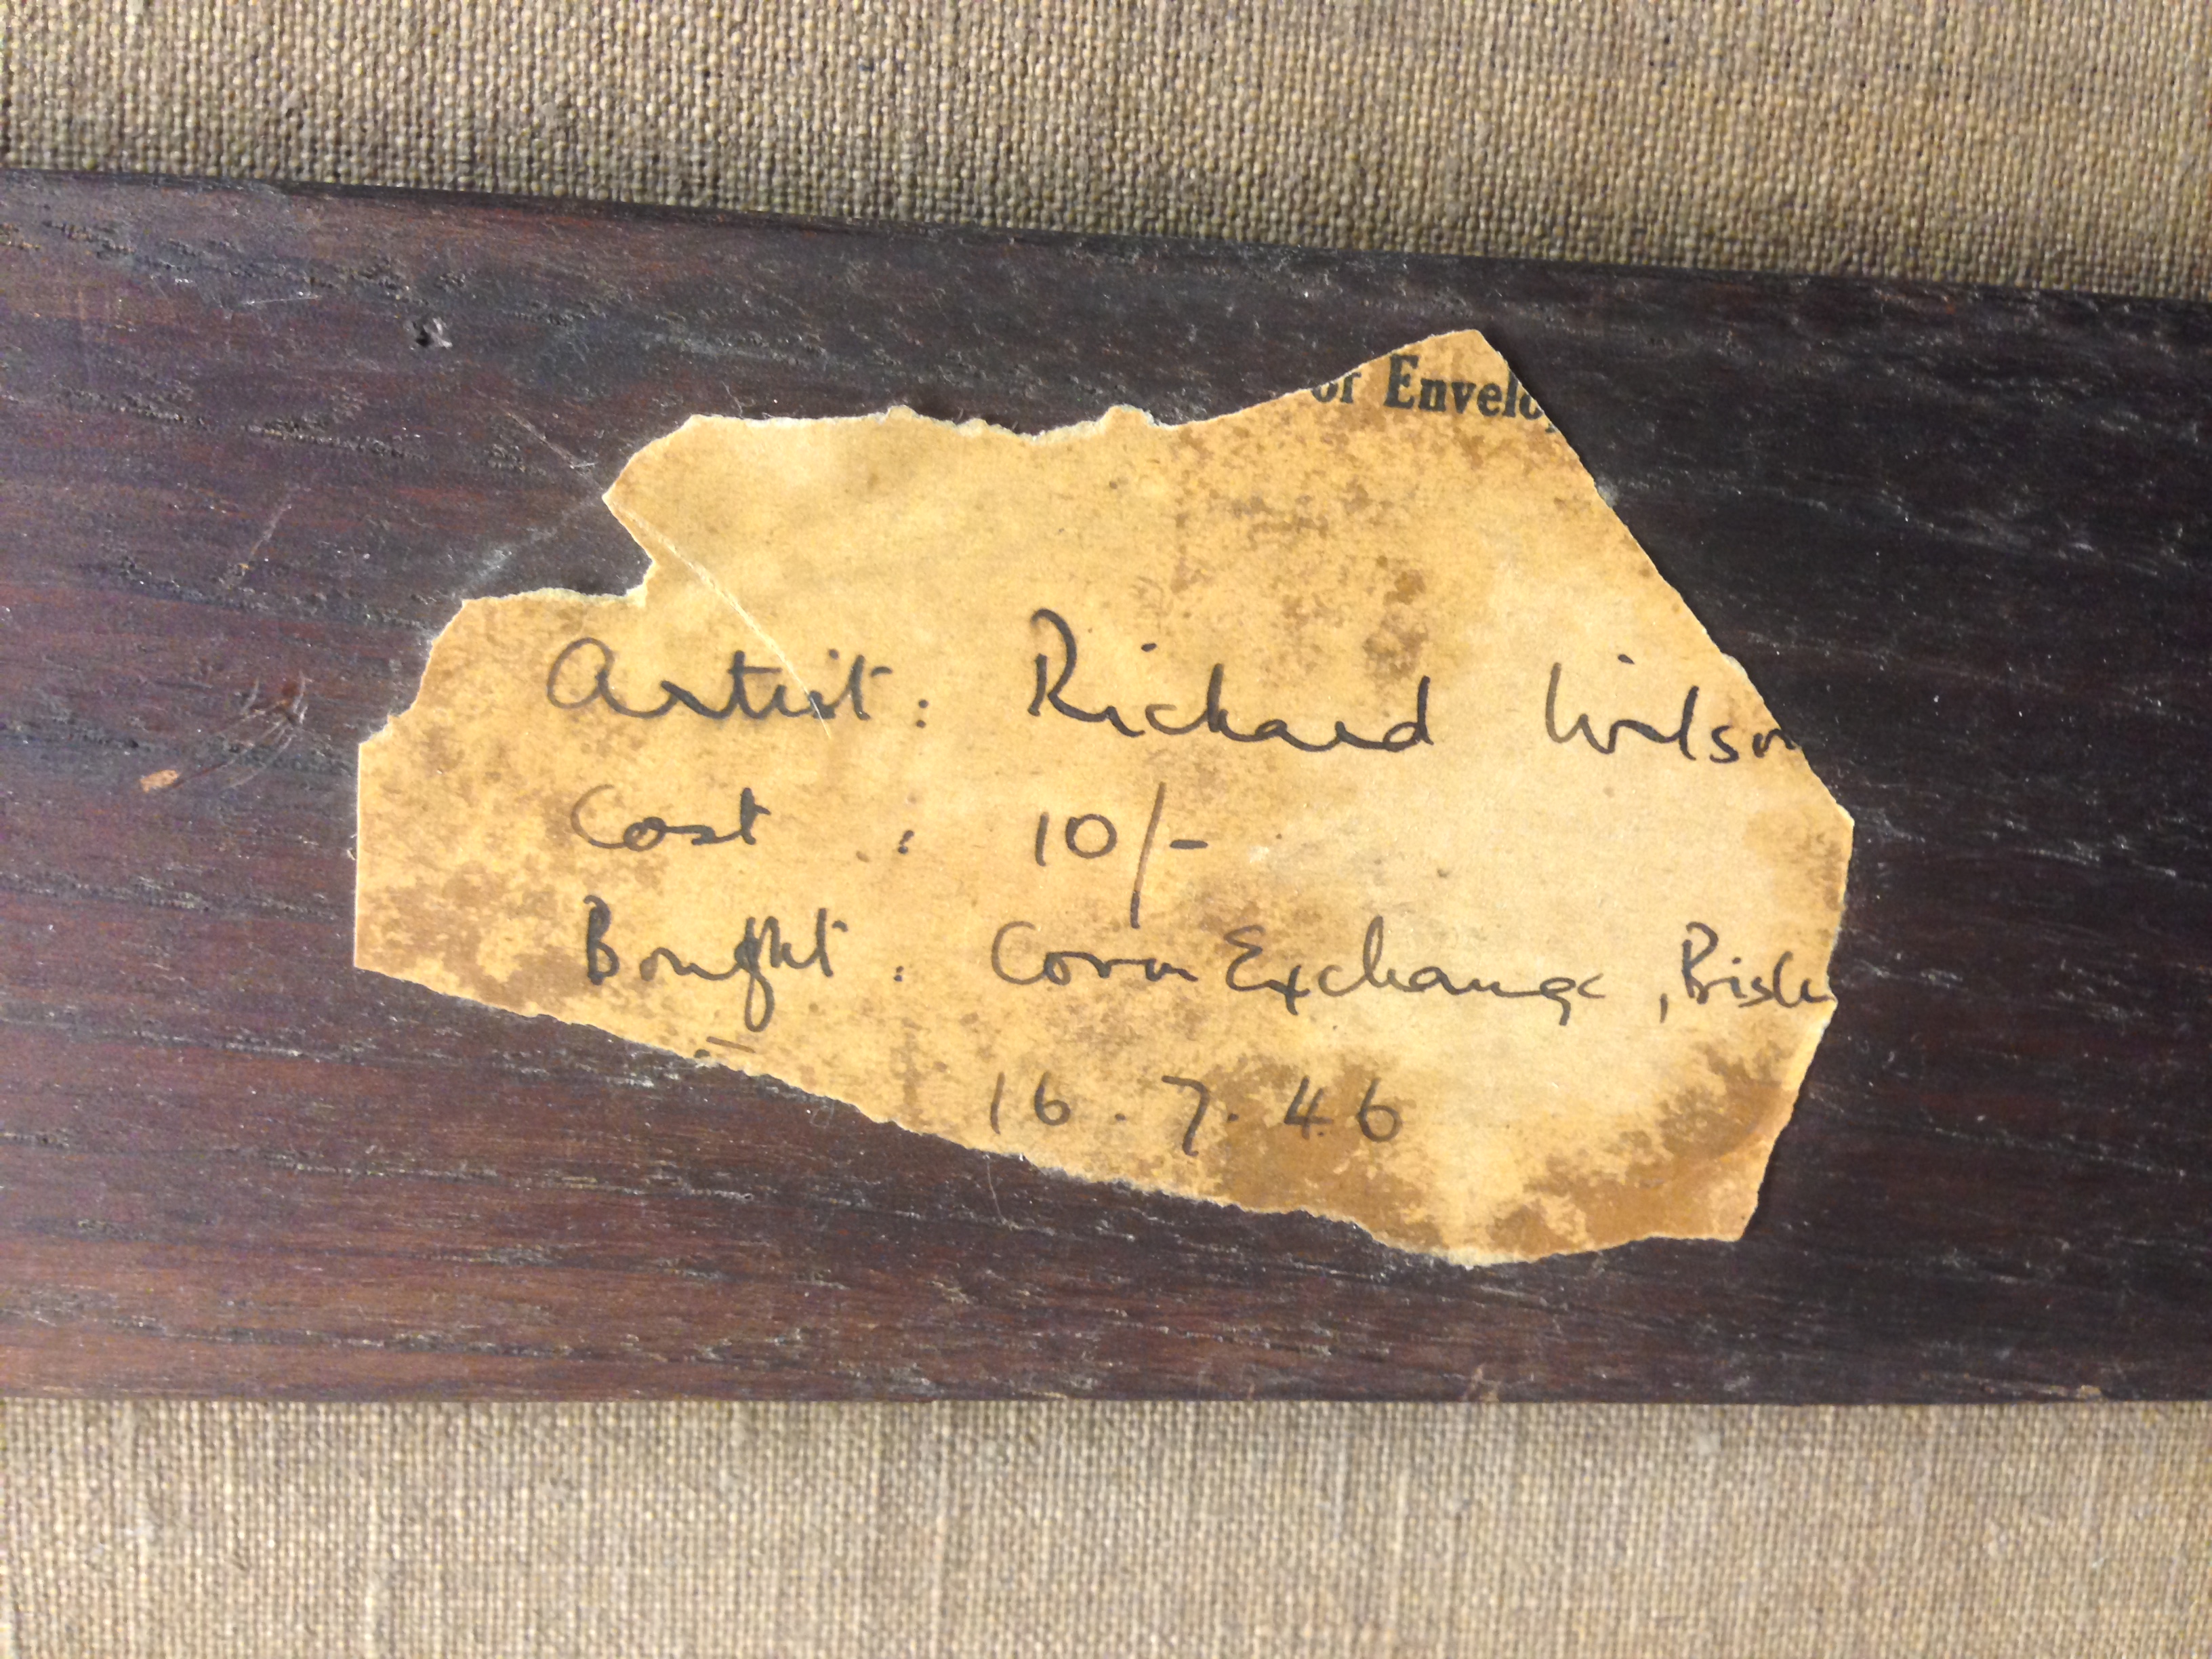 or Envelo
Artist: Richard Wilson
Cost : 10/-
Bought : Corn Exchange,
16.7.46